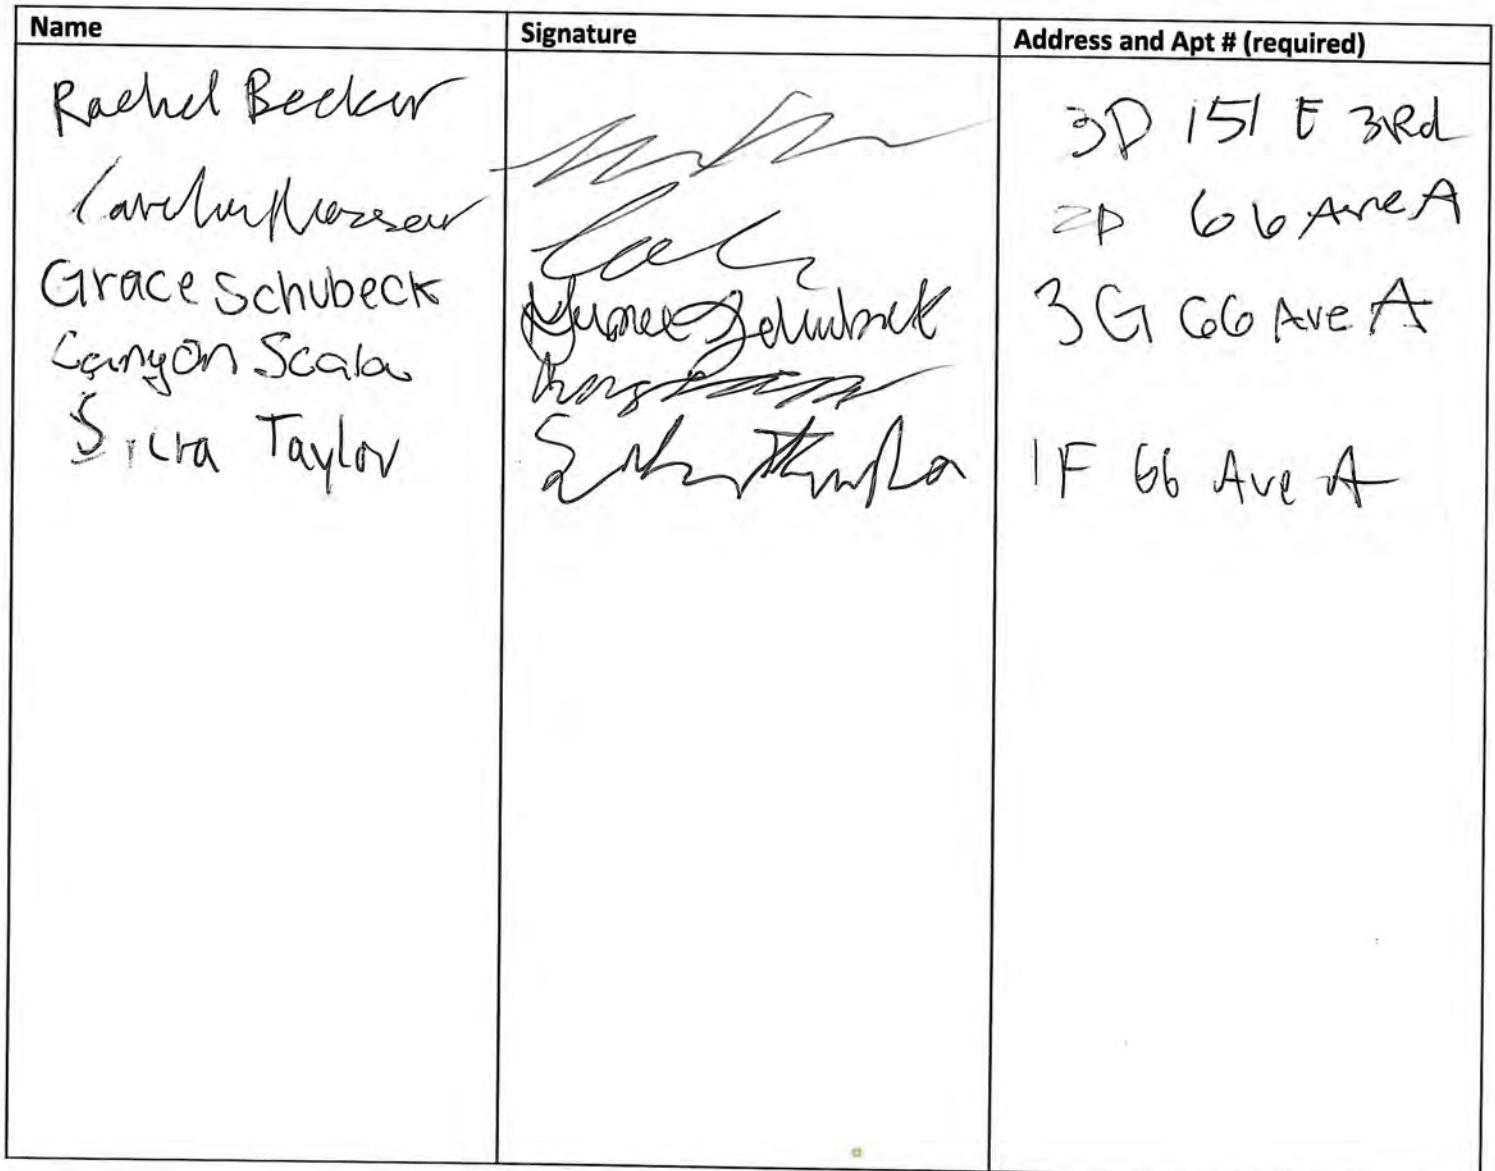 Name Signature Address and Apt # (required)
Rachel Becker 3D 151 E 3Rd
2D 66 Ave A
Grace Schubeck Grace Schubeck 3G 66 Ave A
Canyon Scala
Taylor 1F 66 Ave A